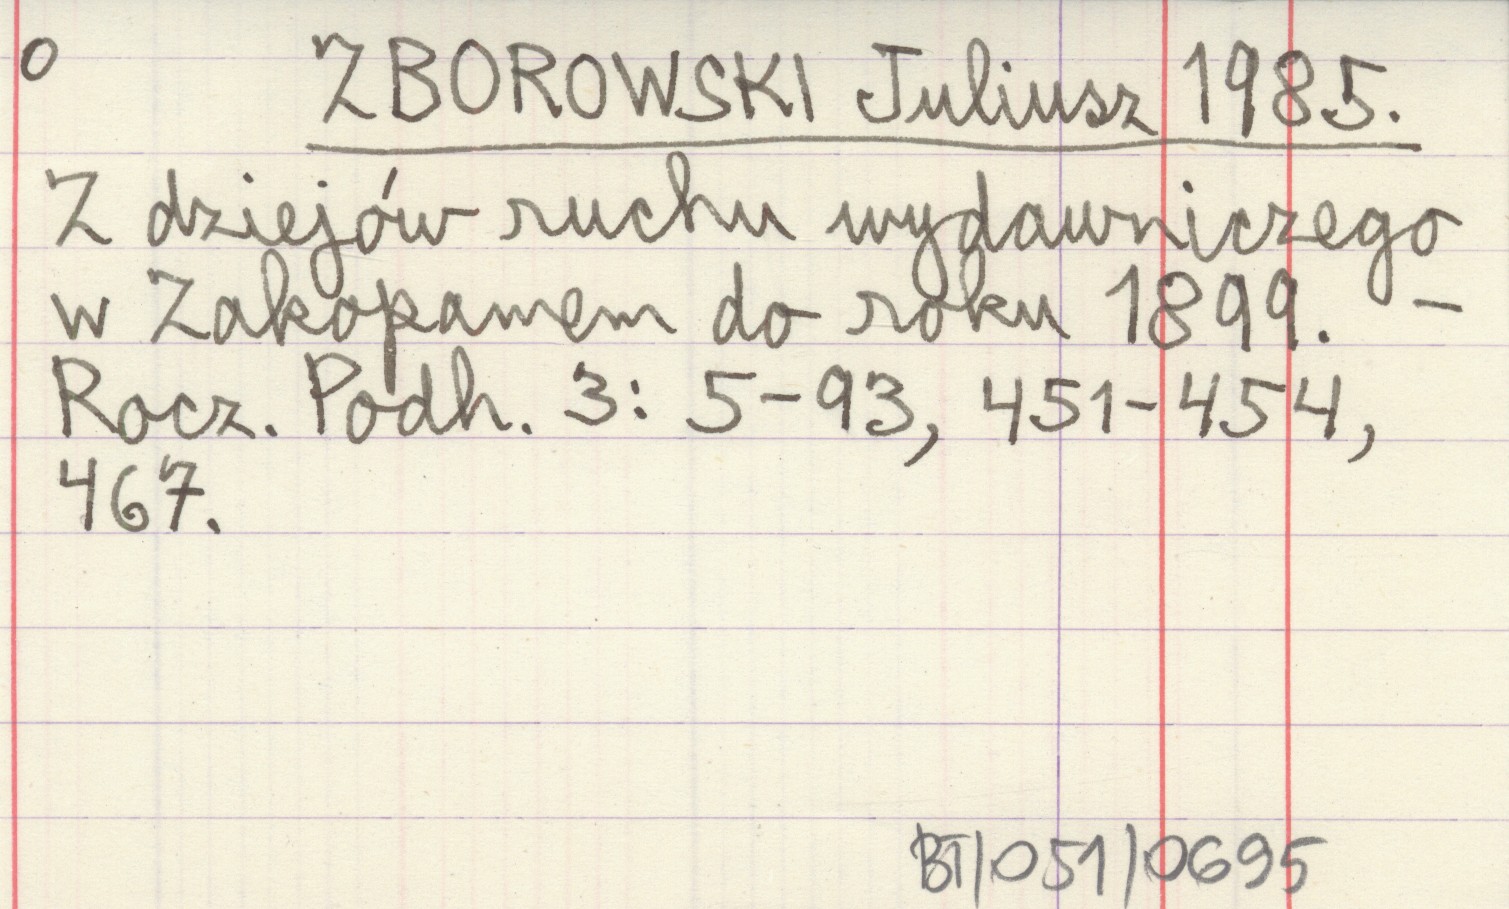 o ZBOROWSKI Juliusz 1985.
Z dziejów ruchu wydawniczego
w Zakopanem do roku 1899. –
Rocz. Podh. 3: 5-93, 451-454,
467.
BT/051/0695